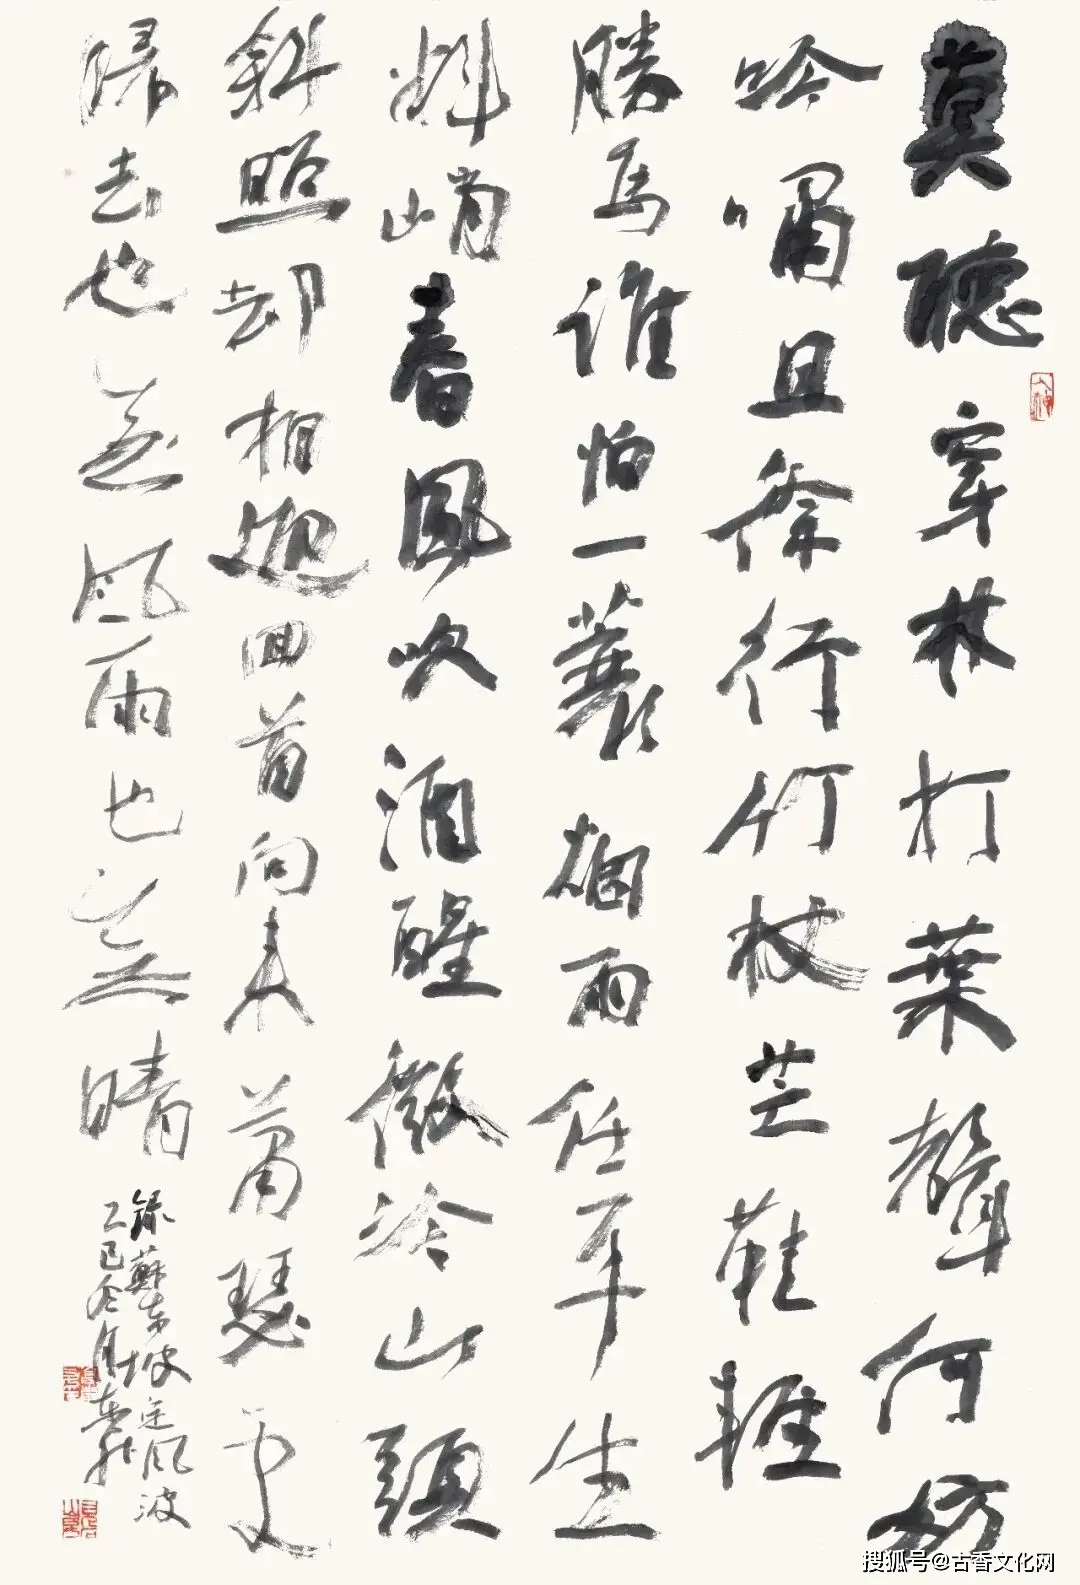 莫聽穿林打葉聲何妨
吟嘯且徐行竹杖芒鞋輕
勝馬誰怕一蓑烟雨任平生
料峭春風吹酒醒微冷山頭
斜照却相迎回首向来蕭瑟处
歸去也無風雨也無晴
錄蘇東坡定风波
乙巳冬月
搜狐号@古香文化网